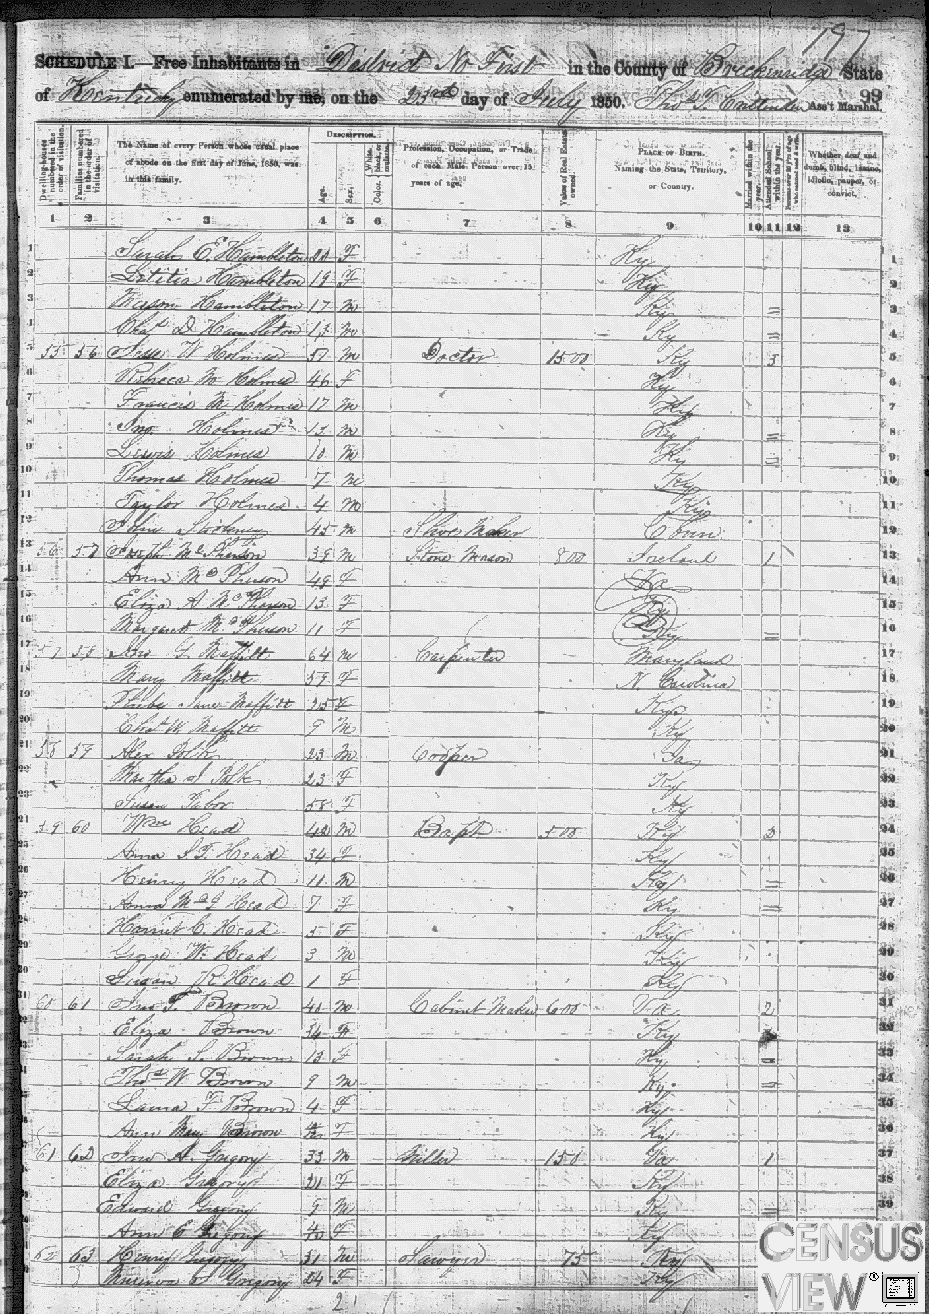 197
SCHEDULE I.—Free Inhabitants in District No First in the County of Breckenridge State
of Kentucky enumerated by me, on the 23rd day of July 1850. Ass't Marshal. 99
Dwelling-houses numbered in the order of visitation.
Families numbered in the order of visitation.
The Name of every Person whose usual place of abode on the first day of June, 1850, was in this family.
DESCRIPTION.
Age.
Sex.
Color, White, black, or mulatto.
Profession, Occupation, or Trade of each Male Person over 15 years of age.
Value of Real Estate owned.
PLACE OF BIRTH. Naming the State, Territory, or Country.
Married within the year.
Attended School within the year.
Whether deaf and dumb, blind, insane, idiotic, pauper, or convict.
1 2 3 4 5 6 7 8 9 10 11 12 13
1 Sarah E Hambleton 20 F Ky 1
2 Letitia Hambleton 19 F Ky 2
3 Mason Hambleton 17 M Ky = 3
Chas D Hambleton 13 M Ky = 4
5 55 56 W Holmes 57 M Doctor 1500 Ky 3 5
6 Rebeca M Holmes 46 F Ky 6
7 Francis M Holmes 17 M Ky 7
8 Jno Holmes 13 M Ky = 8
9 Lewis Holmes 10 M Ky = 9
10 Thomas Holmes 7 M Ky 10
11 Taylor Holmes 4 M Ky 11
12 John 45 M Shoe Maker 12
13 56 57 Joseph McPherson 39 M Stone Mason 800 Ireland 1 13
14 Ann McPherson 49 F 14
15 Eliza A McPherson 13 F Ky 15
16 Margaret McPherson 11 F Ky = 16
17 57 58 Moffitt 64 M Carpenter Maryland 17
18 Mary Moffitt 59 F N Carolina 18
19 Phebe Jane Moffitt 25 F Ky 19
20 Chas W Moffitt 9 M Ky 20
21 58 59 Alex Polk 23 M Cooper 21
22 Martha J Polk 23 F Ky 22
23 Susan Tabor 58 F Ky 23
24 59 60 Wm Head 42 M Bapt 500 Ky 3 24
25 Anna S.T. Head 34 F Ky 25
26 Henry Head 11 M Ky = 26
27 Anna Head 7 F Ky = 27
28 Harriet C Head 5 F Ky 28
29 George W Head 3 M Ky 29
30 Susan K Head 1 F Ky 30
31 60 61 Jno T Brown 41 M Cabinet Maker 600 Va 2 31
32 Eliza Brown 34 F Ky 32
33 Sarah S. Brown 13 F Ky = 33
34 Thos W Brown 9 M Ky = 34
35 Laura F Brown 4 F Ky 35
36 Ann Mary Brown F Ky 36
37 61 62 Jno A. Gregory 33 M Miller 150 Va 1 37
38 Eliza Gregory 21 F Ky 38
39 Edward Gregory 9 M Ky = 39
Ann E Gregory F Ky
62 63 Henry Gregory 31 M Sawyer 75 Ky
S Gregory 24 F Ky
2
CENSUS
VIEW®